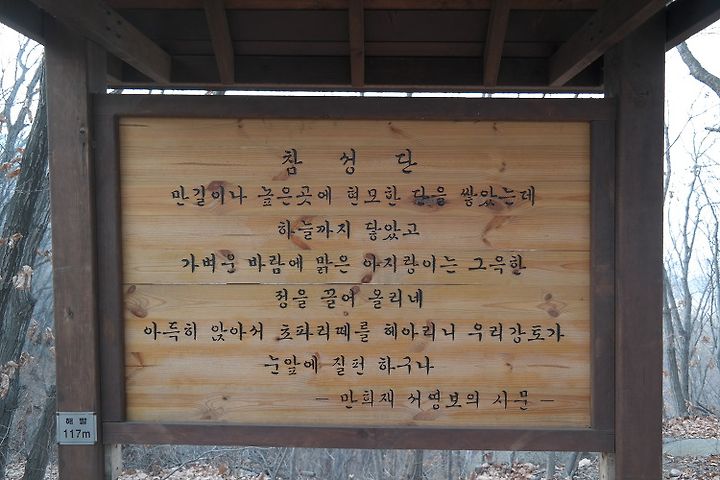 참 성 단
만길이나 높은곳에 현모한 단을 쌓았는데
하늘까지 닿았고
가벼운 바람에 맑은 아지랑이는 그윽한
정을 끌어 올리네
아득히 앉아서 초파리떼를 헤아리니 우리강토가
눈앞에 질펀 하구나
- 만회재 서영보의 시문 -
해 발
117m